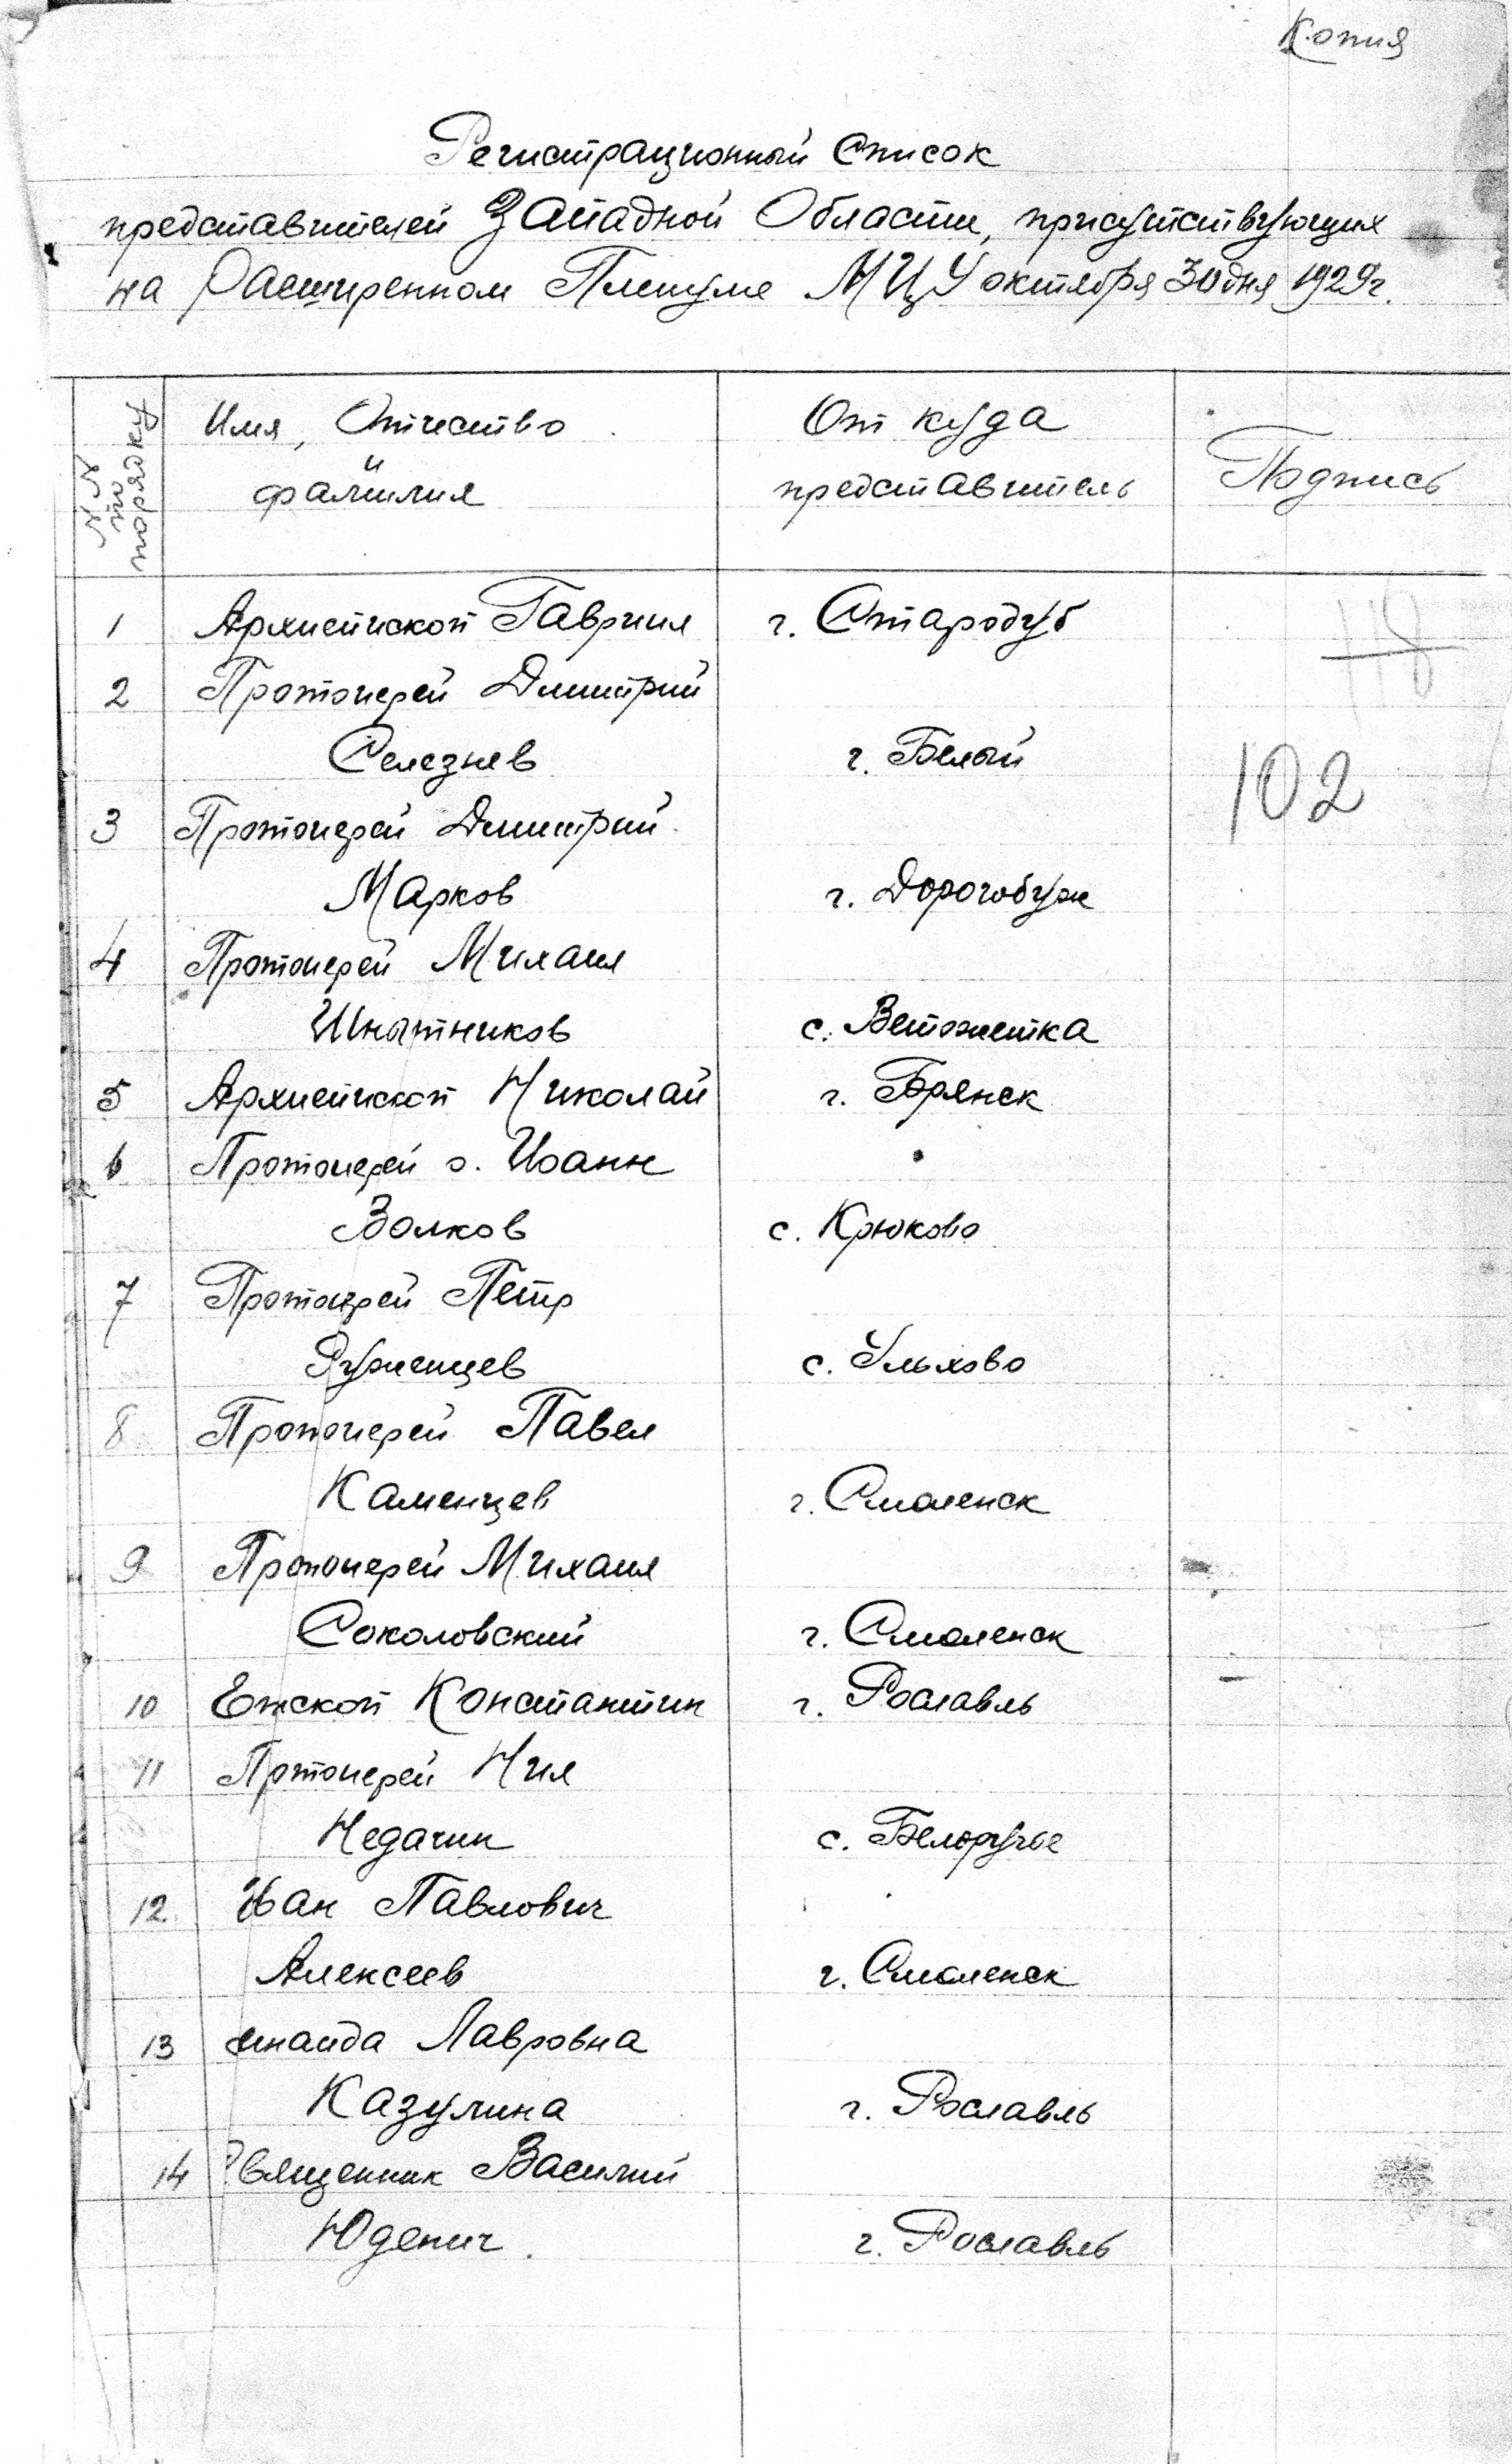 Копия
Регистрационный Список
представителей Западной Области, присутствующих
на Расширенном Пленуме МЦУ октября 30 дня 1929г.
N N по порядку
Имя, Отчество и фамилия
От куда представитель
Подпись
1 Архиепископ Гавриил г. Стародуб
118
2 Протоиерей Димитрий
Селезнев г. Белый
102
3 Протоиерей Димитрий
Марков г. Дорогобуж
4 Протоиерей Михаил
с.
5 Архиепископ Николай г. Брянск
6 Протоиерей о. Иоанн
Волков с. Крюково
7 Протоиерей Петр
Руженцев с. Ульхово
8 Протоиерей Павел
Каменцев г. Смоленск
9 Протоиерей Михаил
Соколовский г. Смоленск
10 Епископ Константин г. Рославль
11 Протоиерей Нил
Недачин с. Белоручье
12 Иван Павлович
Алексеев г. Смоленск
13 инаида Лавровна
Казулина г. Рославль
14 Священник Василий
Юденич. г. Рославль